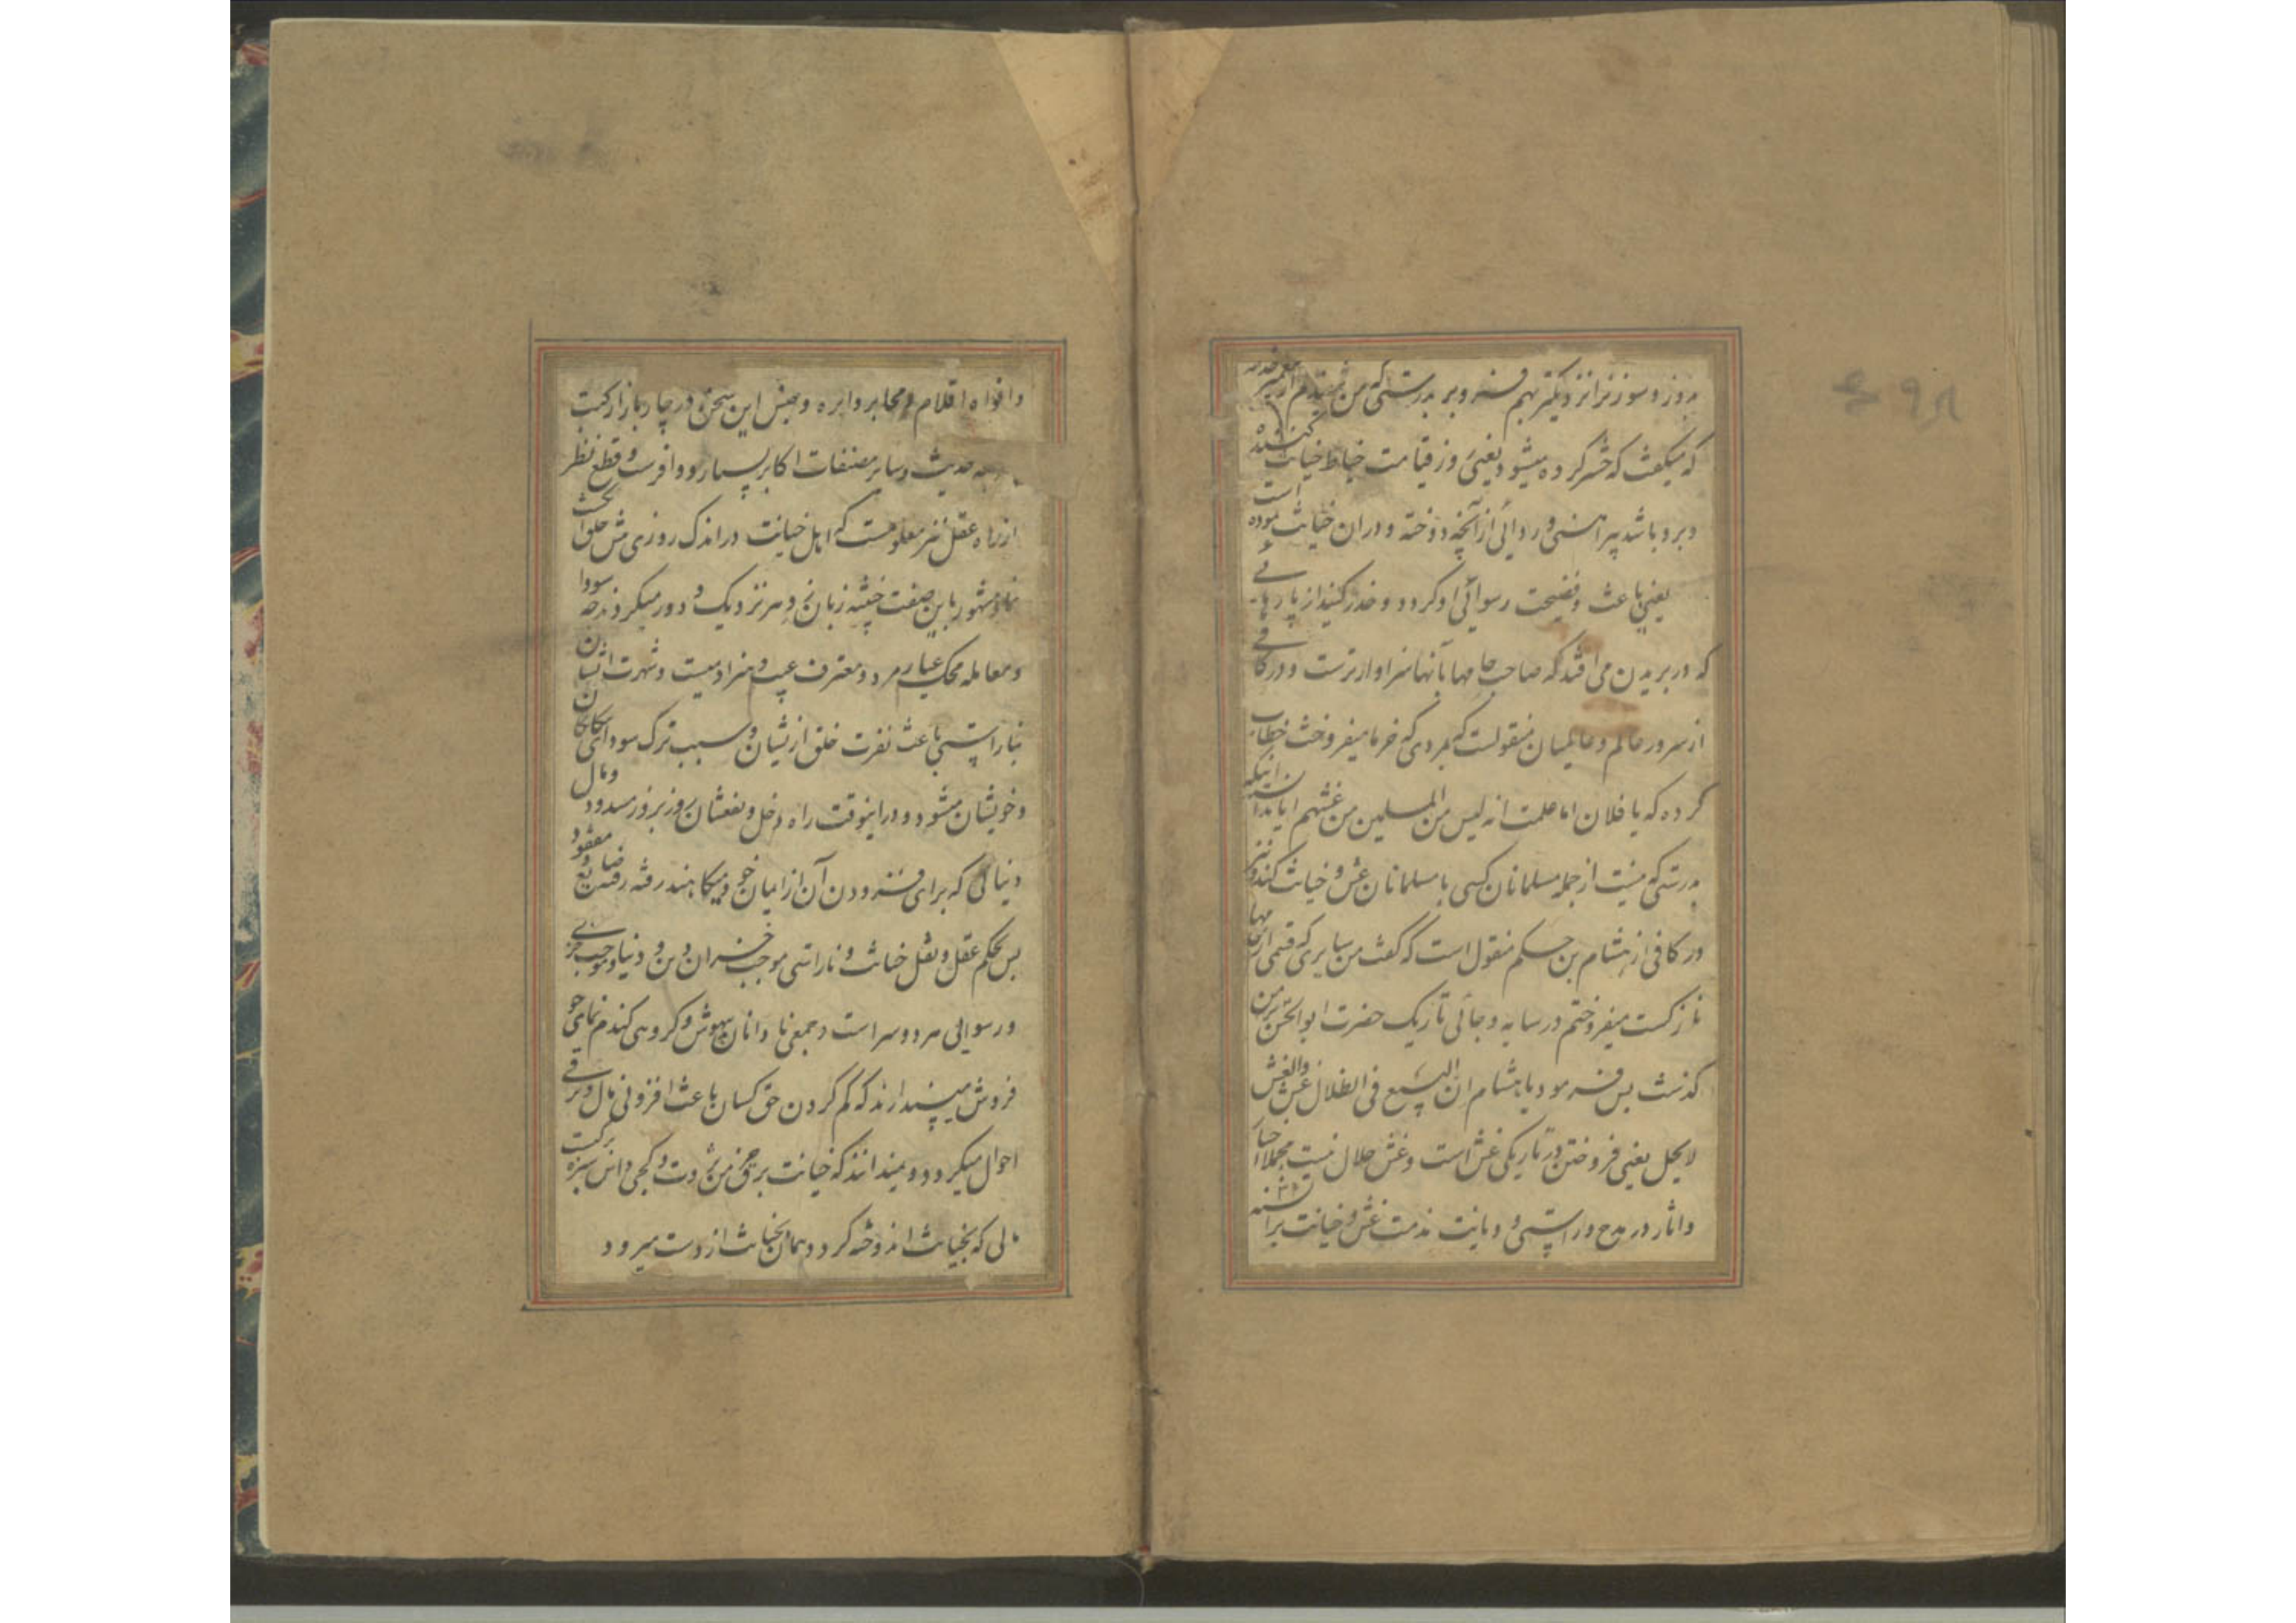 بدوز و سوزن را نزدیکتر بهم فرو بر بدرستی که من شنیدم از پیغمبر خدا
که میگفت که حشر کرده میشود یعنی روز قیامت خیاط خیانت کننده
و برو باشد پیراهنی و ردائی از آنچه دوخته و در آن خیانت نموده است
یعنی باعث فضیحت و رسوائی او گردد و حذر کنید از پارهای
که در بریدن می افتد که صاحب جامها بآنها سزاوارترست و در کافی
از سرور عالم و عالمیان منقولست که بمردی که خرما میفروخت خطاب
کرده که یا فلان اما علمت انه لیس من المسلمین من غشهم ایا ندانسته اینکه
بدرستی که نیست از جمله مسلمانان کسی با مسلمانان غش و خیانت کند و نیز
در کافی از هشام بن حکم منقول است که گفت من سابری که قسمی از جامها
نازکست میفروختم در سایه و جائی تاریک حضرت ابوالحسن بر من
گذشت پس فرمود یا هشام ان البیع فی الظلال غش والغش
لایحل یعنی فروختن در تاریکی غش است و غش حلال نیست مجملا اخبار
و اثار در مدح و راستی و دیانت مذمت غش و خیانت بر السنه
و افواه اقلام و محابر دایره و جنس این سخن در چار بازار کتب
حدیث و سایر مصنفات اکابر بسیار و وافرست و قطع نظر
از راه عقل نیز معلومست که اهل خیانت در اندک روزی پیش خلق
مشهور باین صفت خبیثه زبان زد هر نزدیک و دور میگردند چه سودا
و معامله محک عیار مرد و معترف عیب و هنر ادمیست و شهرت انسان
بناراستی باعث نفرت خلق از ایشان و سبب ترک سودای
و خویشان میشود و در اینوقت راه دخل و نفعشان روز بروز مسدود و مال
دنیائی که برای فزودن آن از ایمان خود میکاهند رفته رفته ضایع و مفقود
پس بحکم عقل و نقل خیانت و ناراستی موجب خسران دین و دنیا و موجب خزی
و رسوایی هر دو سر است و جمعی نادانان بیهوش و گروهی گندم نمای جو
فروش میپندارند که کم کردن حق کسان باعث افزونی مال و ترقی
احوال میگردد و نمیدانند که خیانت برق خرمن ثروت و کجی داس سبزه برکت
مالی که بخیانت اندوخته گردد همان بخیانت از دست میرود